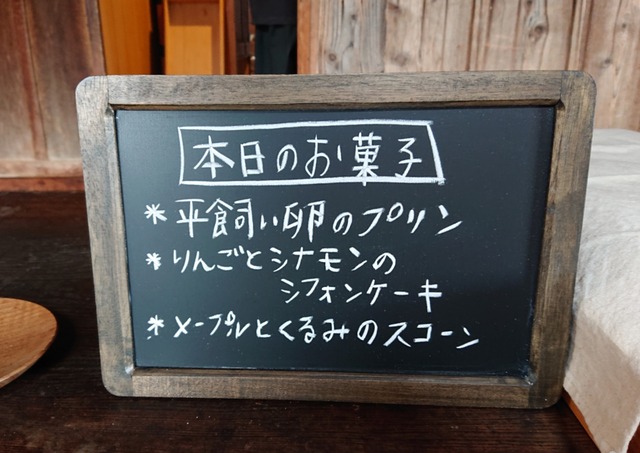 本日のお菓子
* 平飼い卵のプリン
* りんごとシナモンの
シフォンケーキ
* メープルとくるみのスコーン